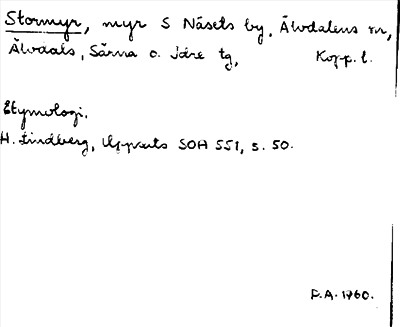 Stormyr, myr S Näsets by, Älvdalens sn,
Älvdals, Särna o. Idre tg, Kopp. l.
Etymologi.
H. Lindberg, Uppsats SOH 551, s. 50.
P.A. 1960.